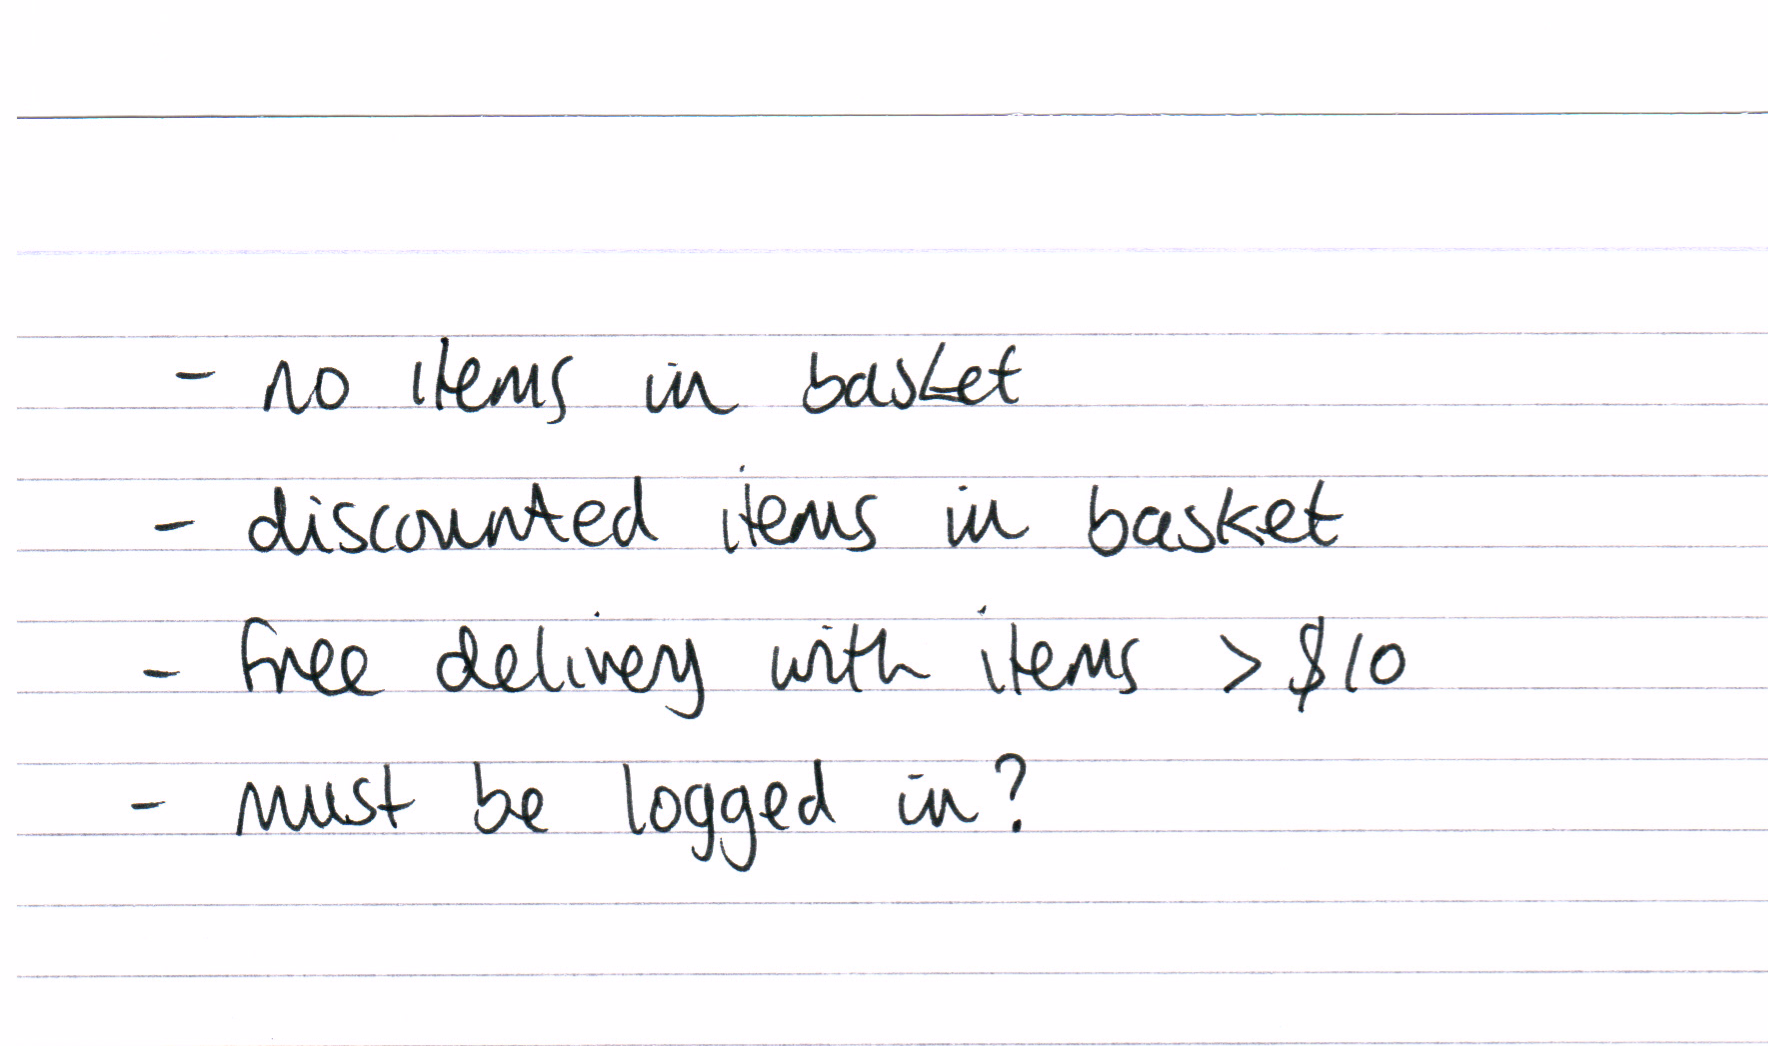 - no items in basket
- discounted items in basket
- free delivery with items > $10
- must be logged in?